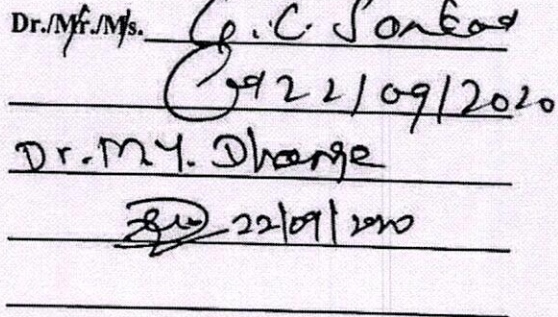 Dr./Mr./Ms. G.C. Sonkad
22/09/2020
Dr. M.Y. Dhange
22/09/2020